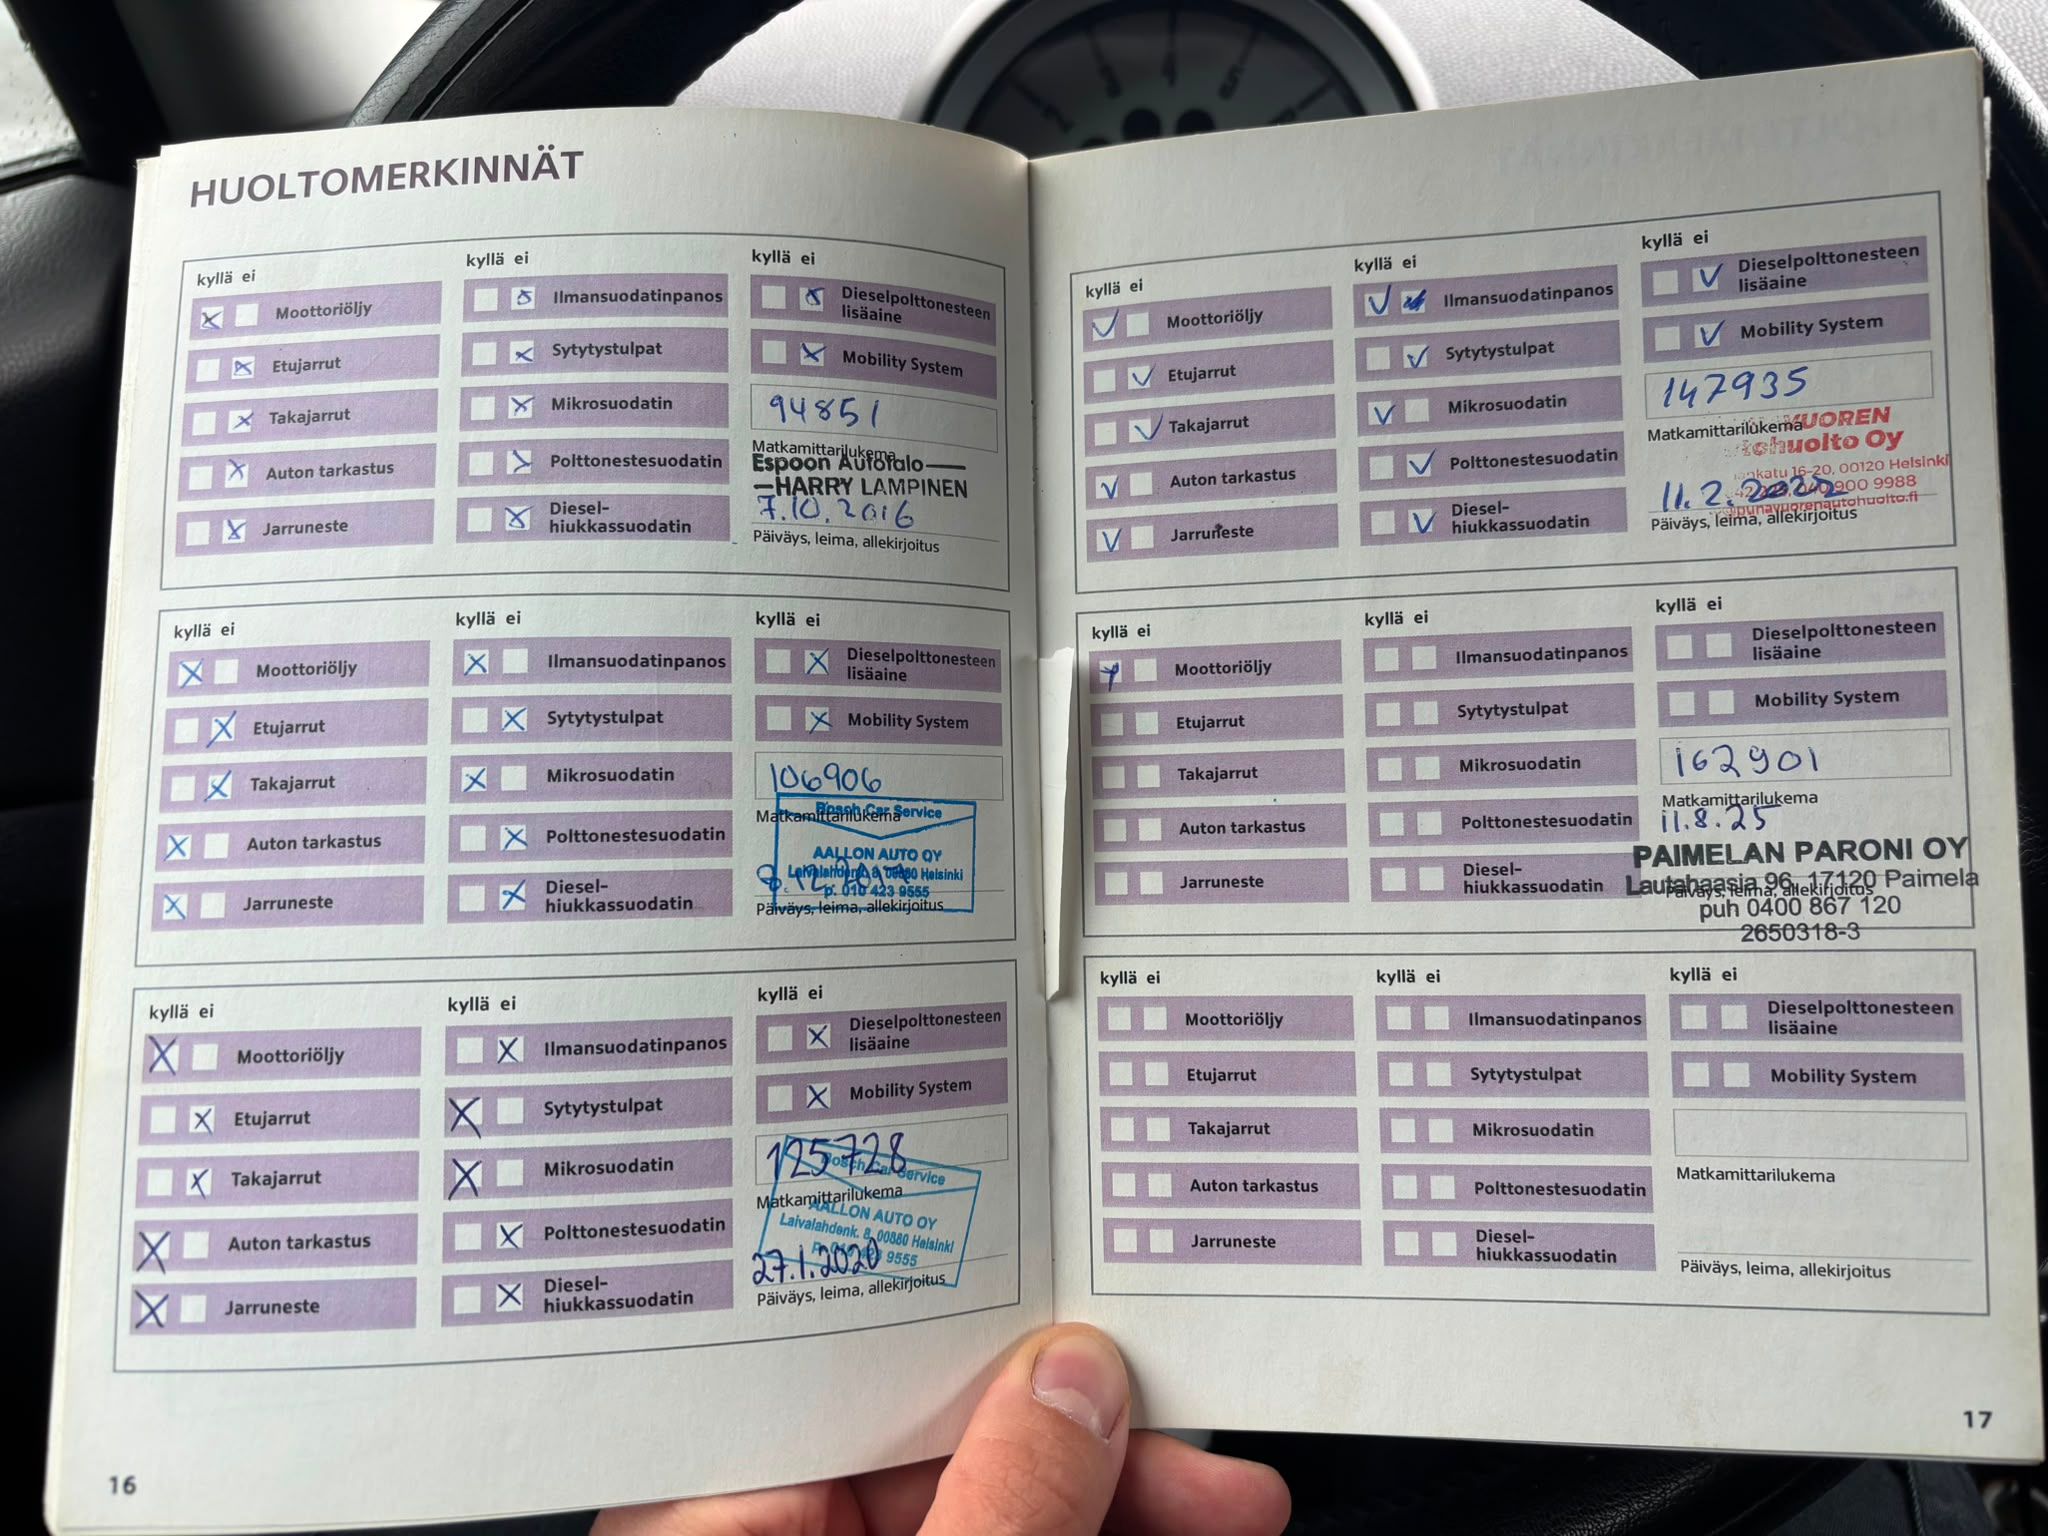 HUOLTOMERKINNÄT
kyllä ei
Moottoriöljy
Etujarrut
Takajarrut
Auton tarkastus
Jarruneste
kyllä ei
Ilmansuodatinpanos
Sytytystulpat
Mikrosuodatin
Polttonestesuodatin
Diesel-
hiukkassuodatin
kyllä ei
Dieselpolttonesteen
lisäaine
Mobility System
94851
Matkamittarilukema
Espoon Autotalo
HARRY LAMPINEN
7.10.2016
Päiväys, leima, allekirjoitus
kyllä ei
Moottoriöljy
Etujarrut
Takajarrut
Auton tarkastus
Jarruneste
kyllä ei
Ilmansuodatinpanos
Sytytystulpat
Mikrosuodatin
Polttonestesuodatin
Diesel-
hiukkassuodatin
kyllä ei
Dieselpolttonesteen
lisäaine
Mobility System
106906
Bosch Car Service
Matkamittarilukema
AALLON AUTO OY
Laivalahdenk. 8, 00880 Helsinki
p. 010 423 9555
Päiväys, leima, allekirjoitus
kyllä ei
Moottoriöljy
Etujarrut
Takajarrut
Auton tarkastus
Jarruneste
kyllä ei
Ilmansuodatinpanos
Sytytystulpat
Mikrosuodatin
Polttonestesuodatin
Diesel-
hiukkassuodatin
kyllä ei
Dieselpolttonesteen
lisäaine
Mobility System
125728
Bosch Car Service
Matkamittarilukema
AALLON AUTO OY
Laivalahdenk. 8, 00880 Helsinki
9555
27.1.2020
Päiväys, leima, allekirjoitus
16
kyllä ei
Moottoriöljy
Etujarrut
Takajarrut
Auton tarkastus
Jarruneste
kyllä ei
Ilmansuodatinpanos
Sytytystulpat
Mikrosuodatin
Polttonestesuodatin
Diesel-
hiukkassuodatin
kyllä ei
Dieselpolttonesteen
lisäaine
Mobility System
147935
Matkamittarilukema
Oy
16-20, 00120 Helsinki
900 9988
11.2.2022
Päiväys, leima, allekirjoitus
kyllä ei
Moottoriöljy
Etujarrut
Takajarrut
Auton tarkastus
Jarruneste
kyllä ei
Ilmansuodatinpanos
Sytytystulpat
Mikrosuodatin
Polttonestesuodatin
Diesel-
hiukkassuodatin
kyllä ei
Dieselpolttonesteen
lisäaine
Mobility System
162901
Matkamittarilukema
11.8.25
PAIMELAN PARONI OY
Lautahaasia 96, 17120 Paimela
Päiväys, leima, allekirjoitus
puh 0400 867 120
2650318-3
kyllä ei
Moottoriöljy
Etujarrut
Takajarrut
Auton tarkastus
Jarruneste
kyllä ei
Ilmansuodatinpanos
Sytytystulpat
Mikrosuodatin
Polttonestesuodatin
Diesel-
hiukkassuodatin
kyllä ei
Dieselpolttonesteen
lisäaine
Mobility System
Matkamittarilukema
Päiväys, leima, allekirjoitus
17